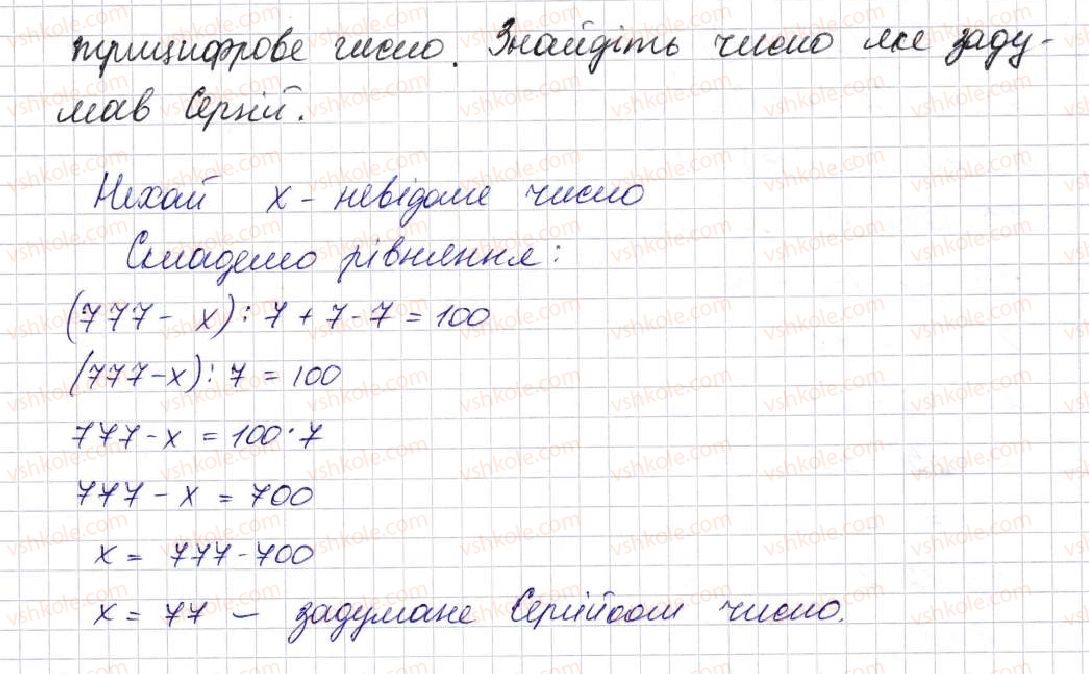 трицифрове число. Знайдіть число яке заду-
мав Сергій.
Нехай x - невідоме число
Складемо рівняння:
(777 - x) : 7 + 7 - 7 = 100
(777 - x) : 7 = 100
777 - x = 100 · 7
777 - x = 700
x = 777 - 700
x = 77 — задумане Сергійом число.